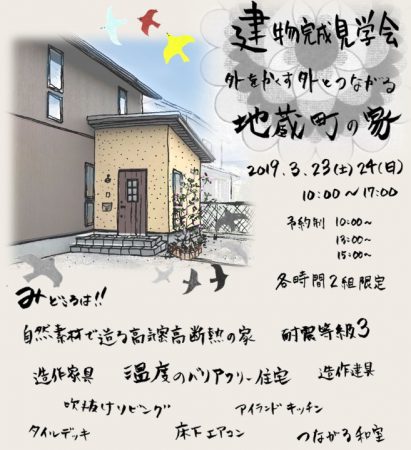 建物完成見学会
外をかくす外とつながる
地蔵町の家
2019.3.23(土)24(日)
10:00～17:00
予約制 10:00～
13:00～
15:00～
各時間2組限定
みどころは!!
自然素材で造る高気密高断熱の家 耐震等級3
造作家具 温度のバリアフリー住宅 造作建具
吹抜けリビング アイランドキッチン
タイルデッキ 床下エアコン つながる和室